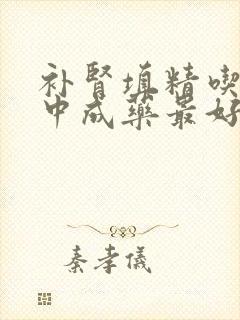 补肾填精喫
中成藥最好
秦孝儀